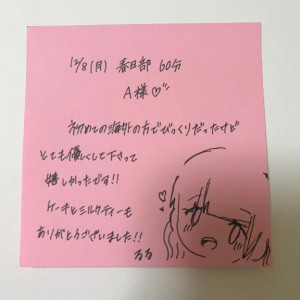 12/8(月) 春日部 60分
A様♡
初めての海外の方でびっくりだったけど
とても優しくして下さって
嬉しかったです!!
ケーキとミルクティーも
ありがとうございました!!
るる